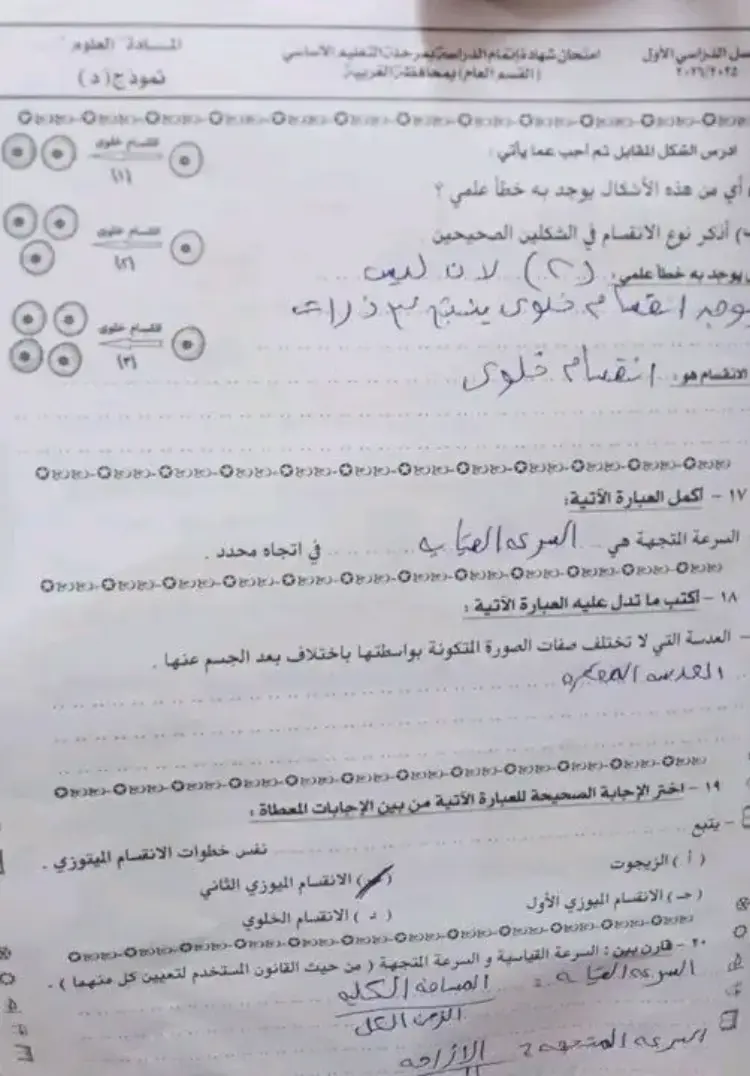 المادة العلوم
نموذج (د)
امتحان شهادة إتمام الدراسة بمرحلة التعليم الأساسي
(القسم العام) بمحافظة الغربية
الدراسي الأول
٢٠٢٦/٢٠٢٥
ادرس الشكل المقابل ثم أجب عما يأتي :
أي من هذه الأشكال يوجد به خطأ علمي ؟
أذكر نوع الانقسام في الشكلين الصحيحين
يوجد به خطأ علمي : (٢) لان ليس
يوجد انقسام خلوى ينتج ٣
الانقسام هو : انقسام خلوى
انقسام خلوى
(١)
انقسام خلوى
(٢)
انقسام خلوى
(٣)
١٧ - أكمل العبارة الآتية :
السرعة المتجهة هي السرعه القياسيه في اتجاه محدد .
١٨ - اكتب ما تدل عليه العبارة الآتية :
- العدسة التي لا تختلف صفات الصورة المتكونة بواسطتها باختلاف بعد الجسم عنها .
العدسه المقعره
١٩ - اختر الإجابة الصحيحة للعبارة الآتية من بين الإجابات المعطاة :
- يتبع نفس خطوات الانقسام الميتوزي .
( أ ) الزيجوت
الانقسام الميوزي الثاني
( جـ ) الانقسام الميوزي الأول
( د ) الانقسام الخلوي
٢٠ - قارن بين : السرعة القياسية و السرعة المتجهة ( من حيث القانون المستخدم لتعيين كل منهما ) .
السرعه القياسيه = المسافه الكليه
الزمن الكلى
السرعه المتجهة = الازاحه